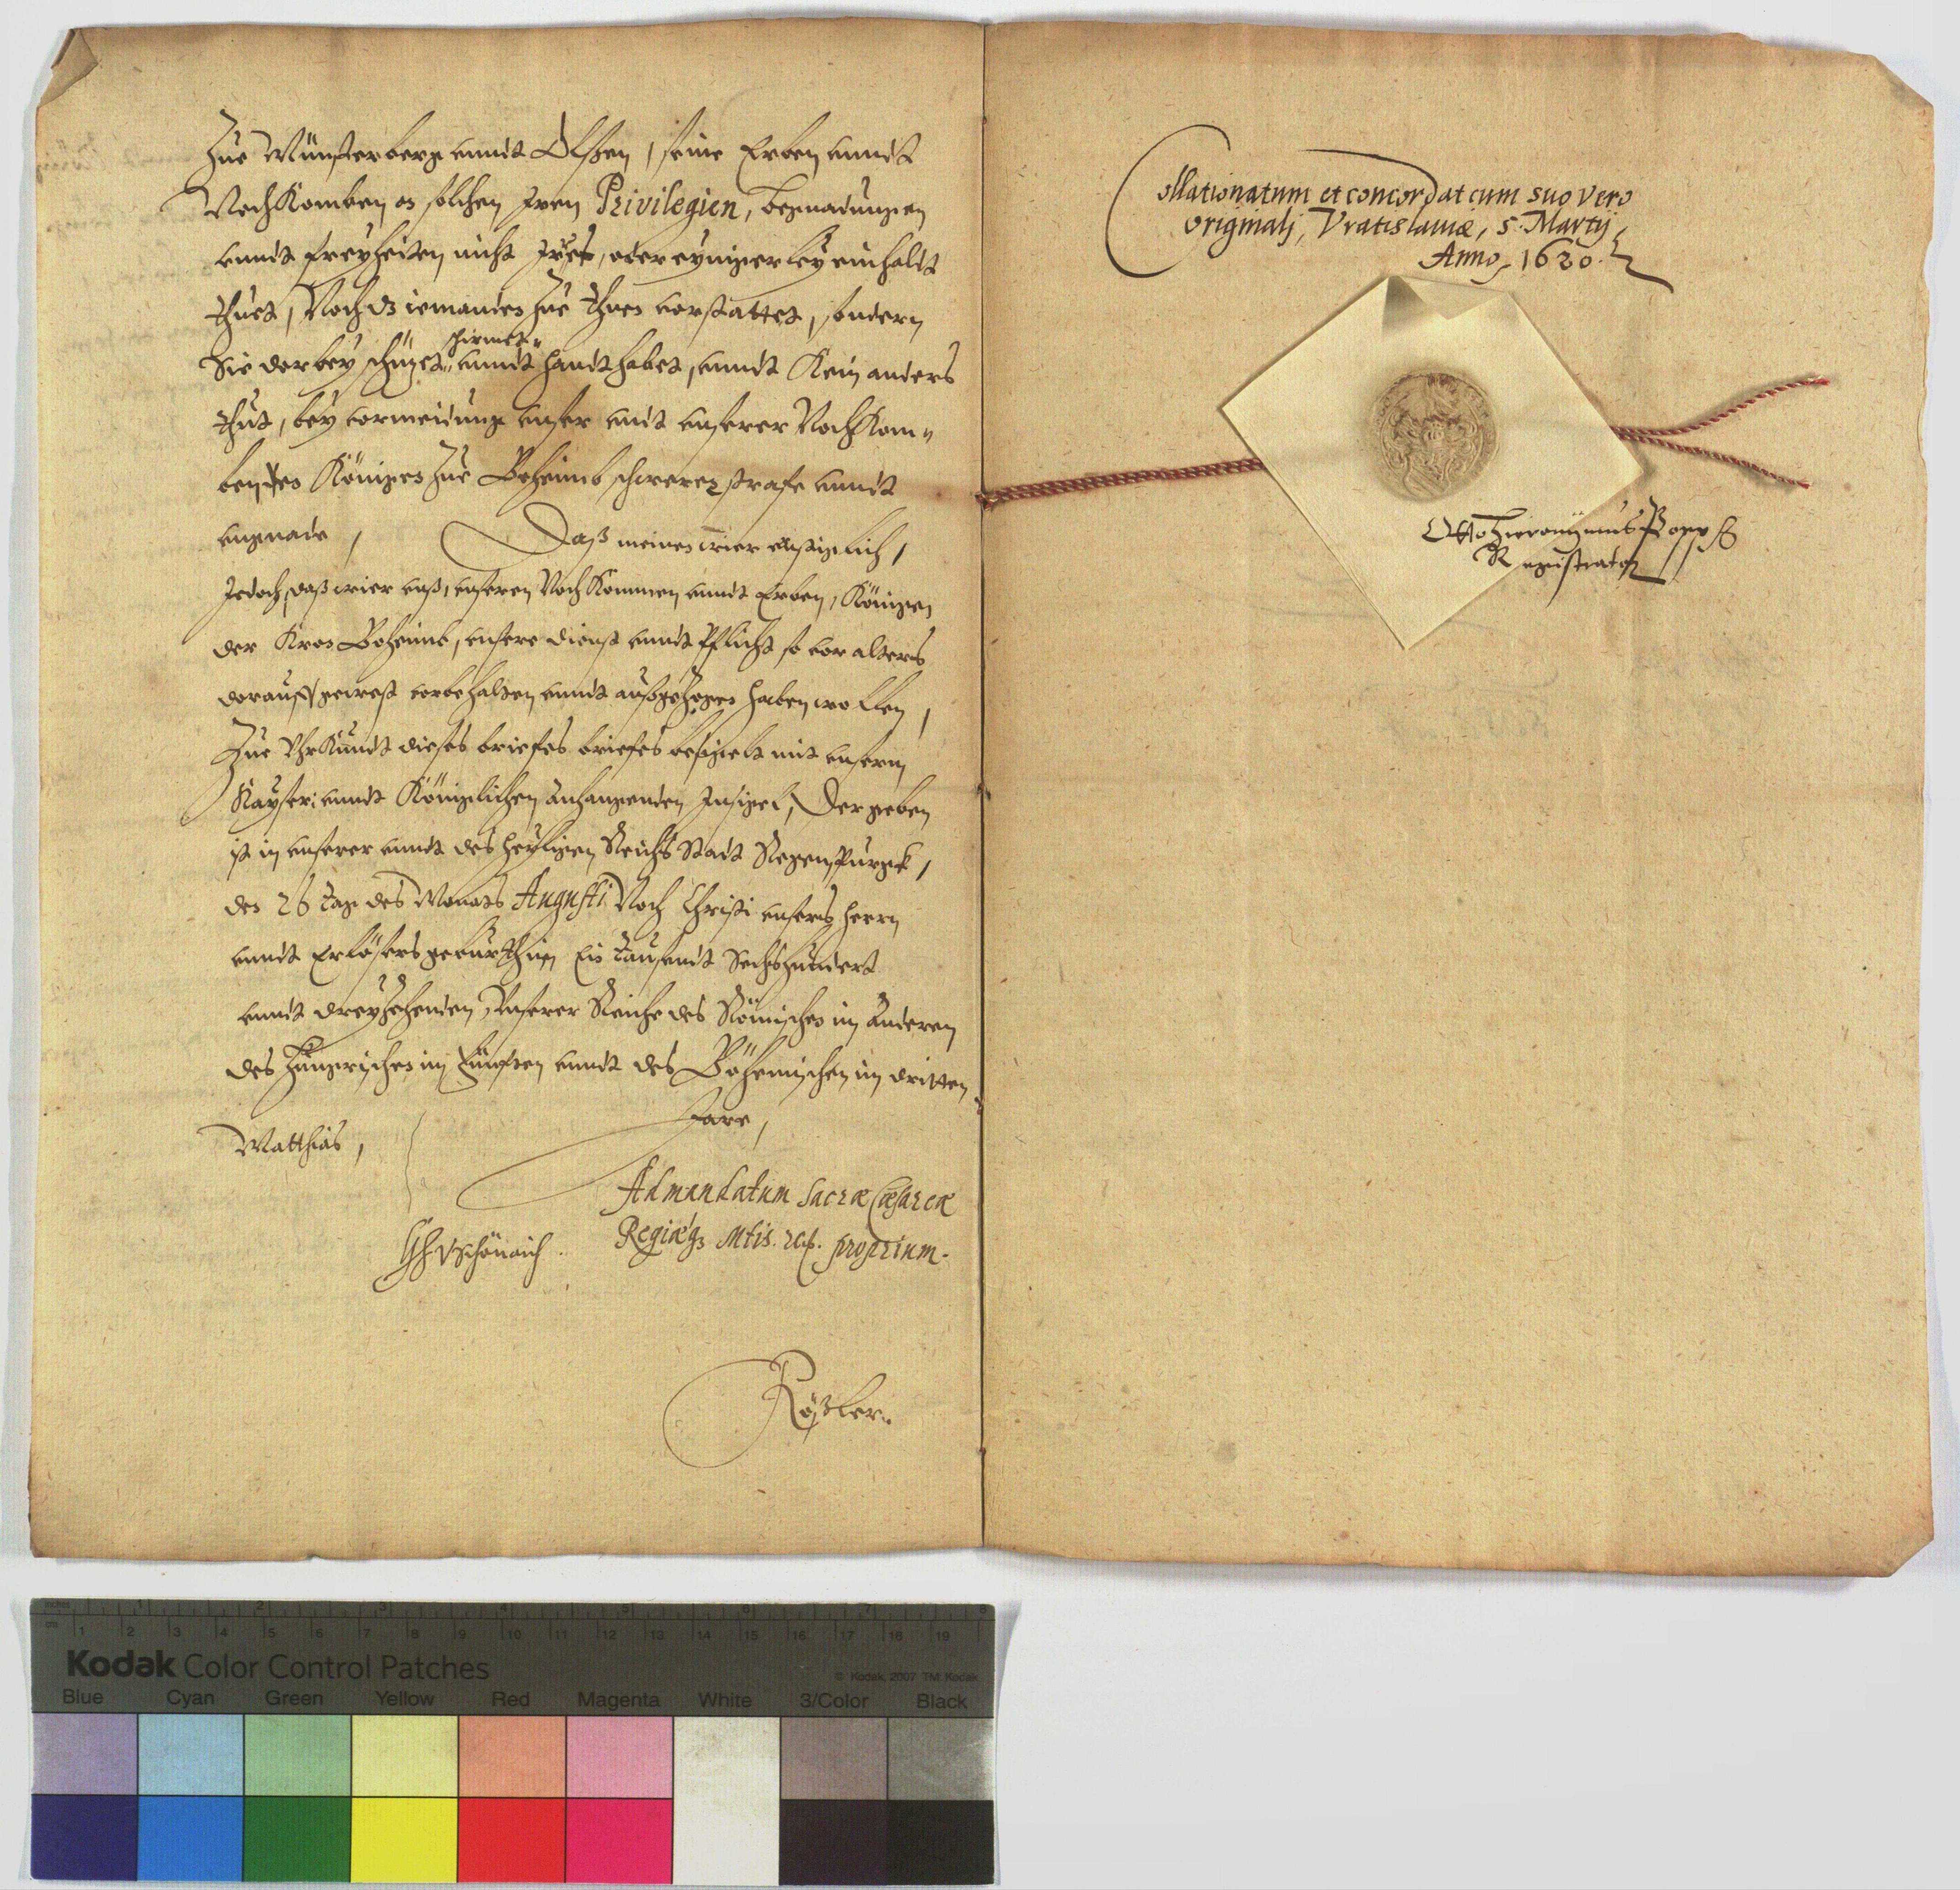 Zue Münsterberg unndt Olßen, seine Erben unndt
NochKomben an solchen Iren Privilegien, begnadungen
unndt freyheiten nicht Irret, oder eynigerley einhaldt
thuet, Noch deß iemandes Zue thuen vorstattet, sondern
Sie darbey schützet, schirmet unndt handthabet, unndt Kein anders
thut, bey vormeidung unser undt unserer NochKom-
ben des Königes Zue Beheimb schwerer strafe unndt
ungnade, Daß meinen wier ernstiglich,
Jedoch, daß wier unß, unseren NochKommen unndt Erben, Königen
der Kron Boheimb, unsere dienst unndt Pflicht so vor alters
dorauff gewest vorbehalten unndt außgezogen haben wollen,
Zue UhrKundt dieses briefes briefes besigelt mit unserm
Kayser: unndt Königlichen anhangenden Insigel, Der geben
ist in unserer unndt des heyligen Reichs Stadt Regenspurgk,
den 26 tag des Monats Augusti Noch Christi unsers herrn
unndt Erlösers geburth im Ein tausendt Sechshundert
unndt dreyzehenden, Unserer Reiche des Römischen im Anderen
des Hungrischen im fünften unndt des Böhemischen im dritten
Jare,
Matthias,
Ad mandatum Sacræ Cæsareæ
Regiæq3 Mtis. proprium.
GH. v Schönaich.
Rößler.
Collationatum et concordat cum suo vero
originalj, Vratislaviæ, 5. Martij,
Anno, 1620.
Otto Hieronymus Popp
Registrator
Kodak Color Control Patches
© Kodak, 2007 TM: Kodak
Blue Cyan Green Yellow Red Magenta White 3/Color Black